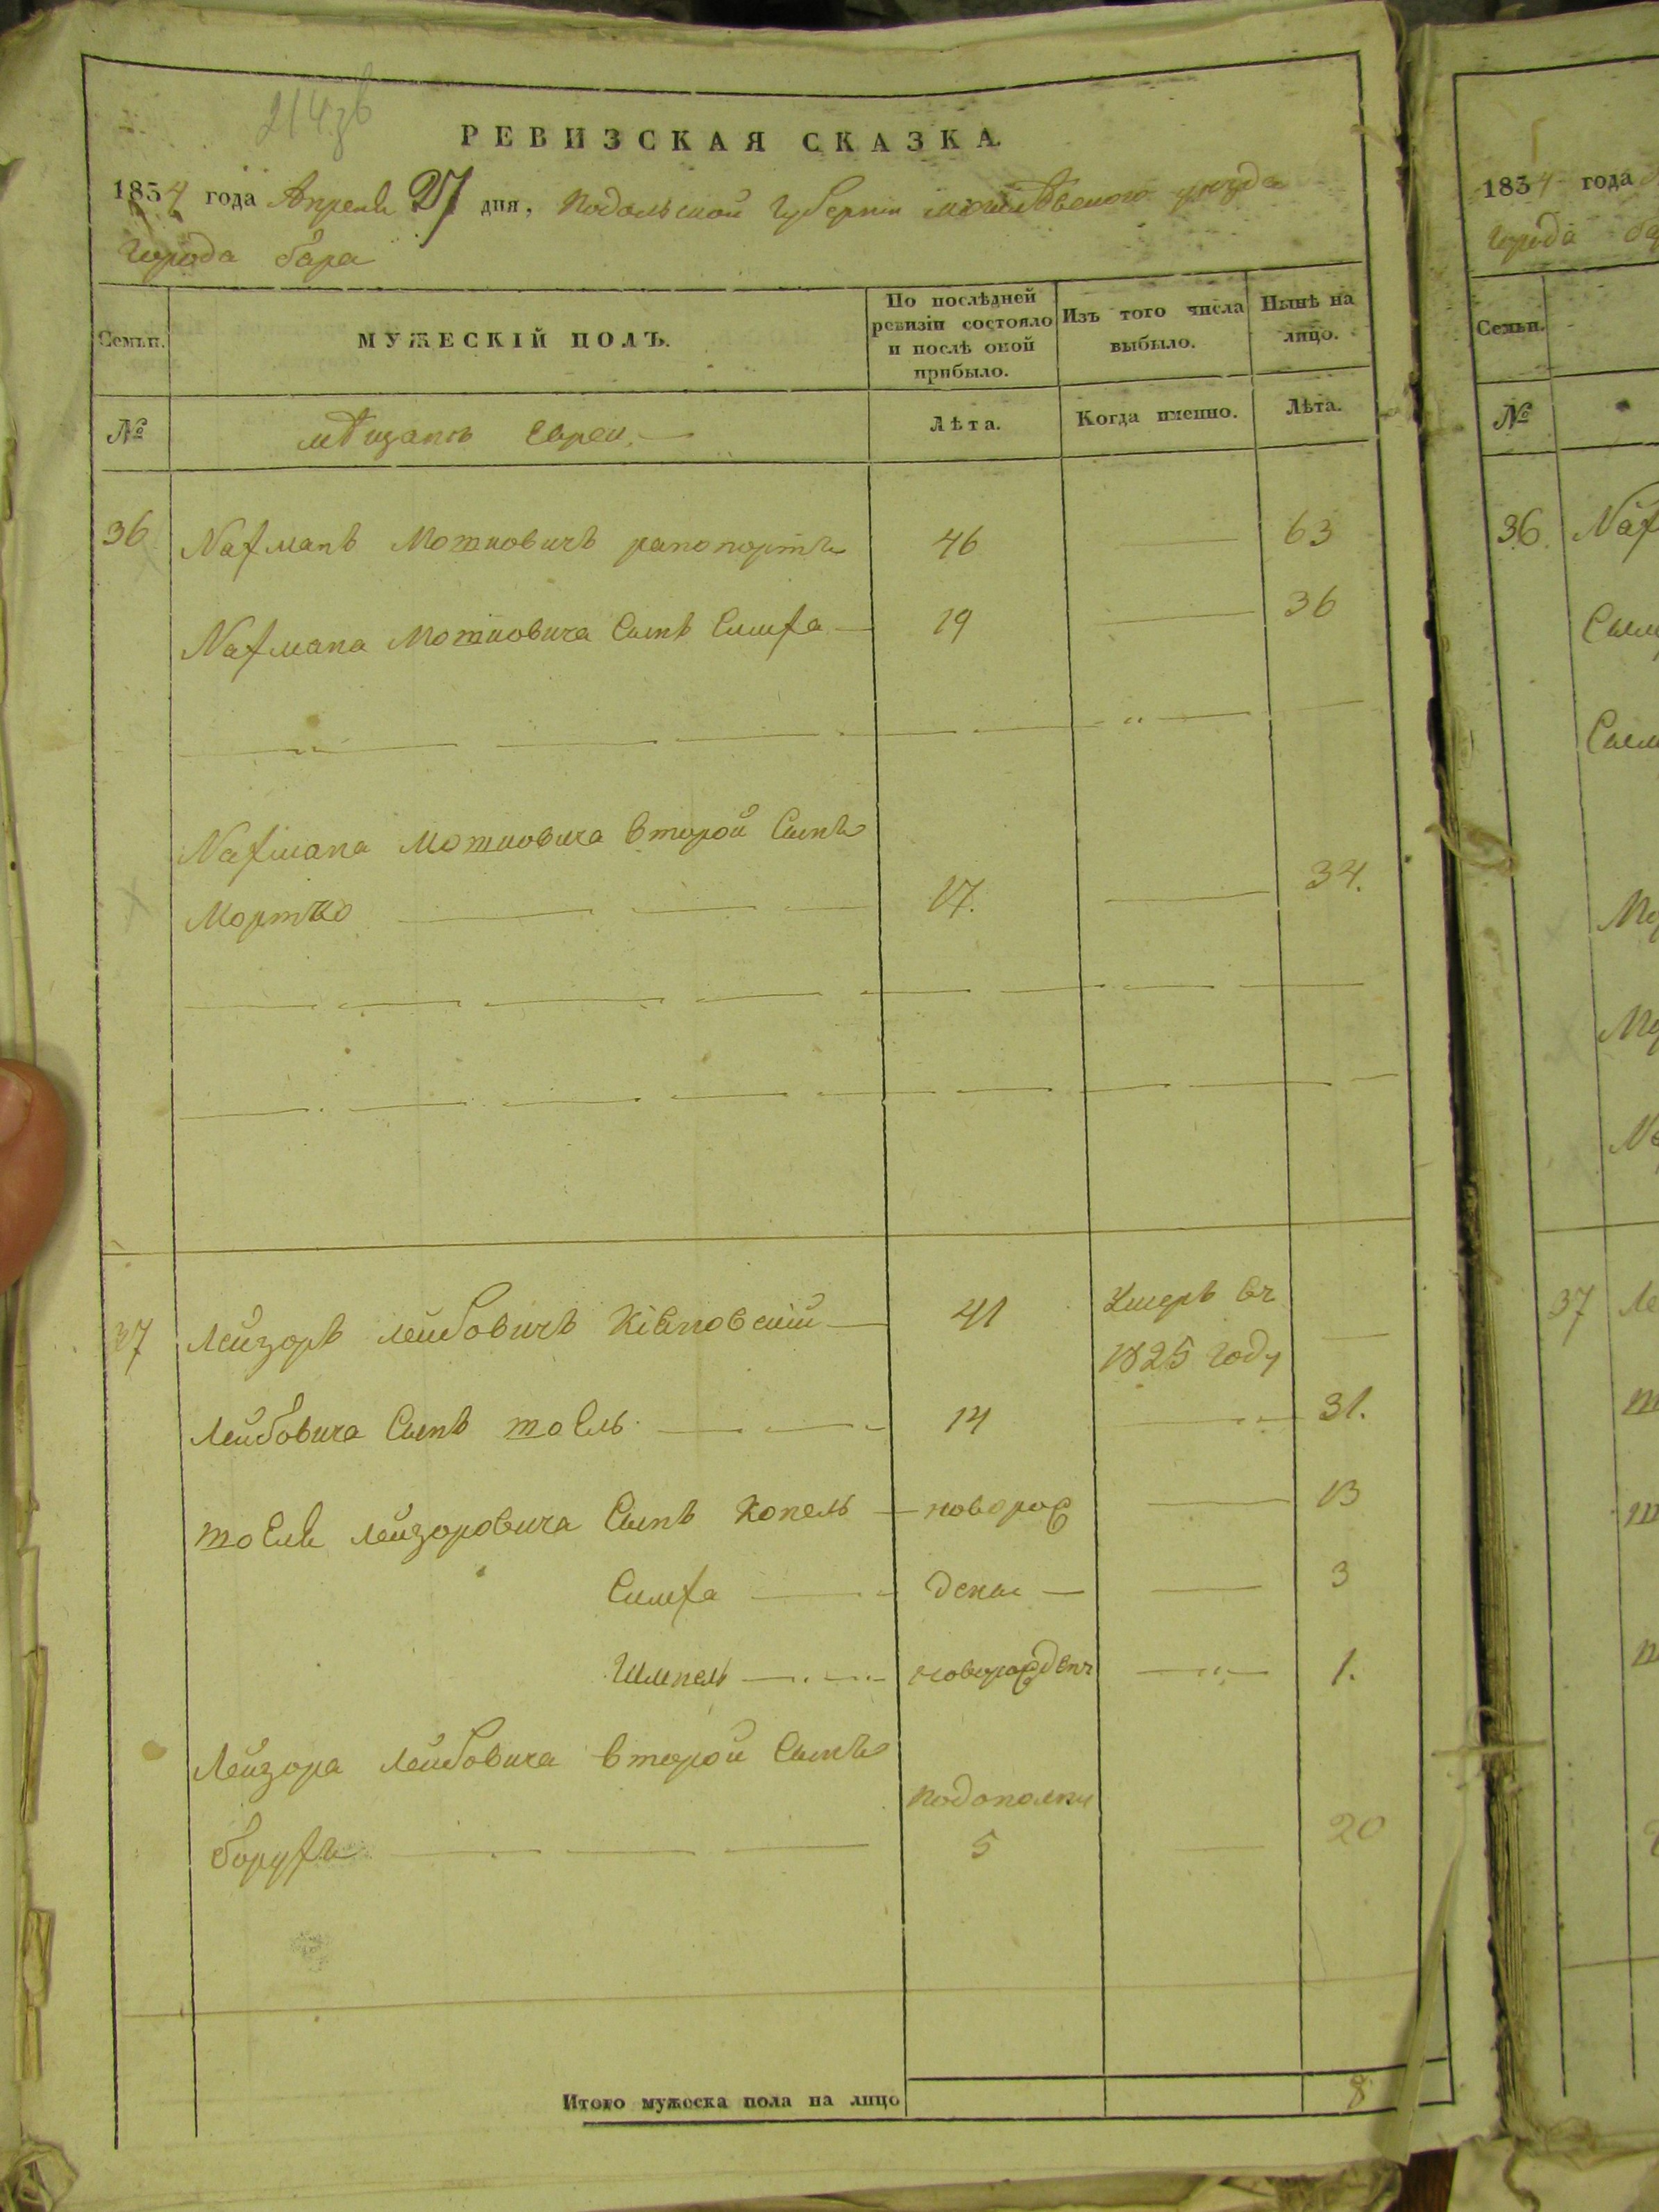 РЕВИЗСКАЯ СКАЗКА
1834 года Апреля 27 дня, Подольской Губернии могилевского уезда
города бара
Семьи. МУЖЕСКІЙ ПОЛЪ. По послѣдней ревизіи состояло и послѣ оной прибыло. Изъ того числа выбыло. Нынѣ на лицо.
№ мѣщанъ Евреи. Лѣта. Когда именно. Лѣта.
36 Nахманъ Мошковичъ рапопортъ 46 — 63
Nахмана Мошковича Сынъ Симха — 19 — 36
Nахмана Мошковича второй Сынъ
Мортко — 17. — 34.
37 Лейзоръ лейбовичъ — 41 Умеръ въ
1825 году —
Лейбовича Сынъ тоель — 14 — 31.
тоеля лейзоровича Сынъ Копель — новорож 13
Симха — денъ — 3
Шмпель — новорожденъ — 1.
Лейзора Лейбовича второй Сынъ
борухъ — 5 — 20
Итого мужеска пола на лицо 8
1834 года
города
Семьи.
№
36 Nах
37